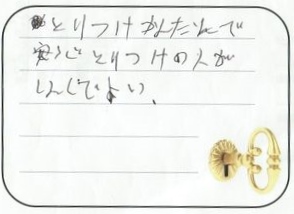 とりつけかんたんで
とりつけの人が
しんじてよい、